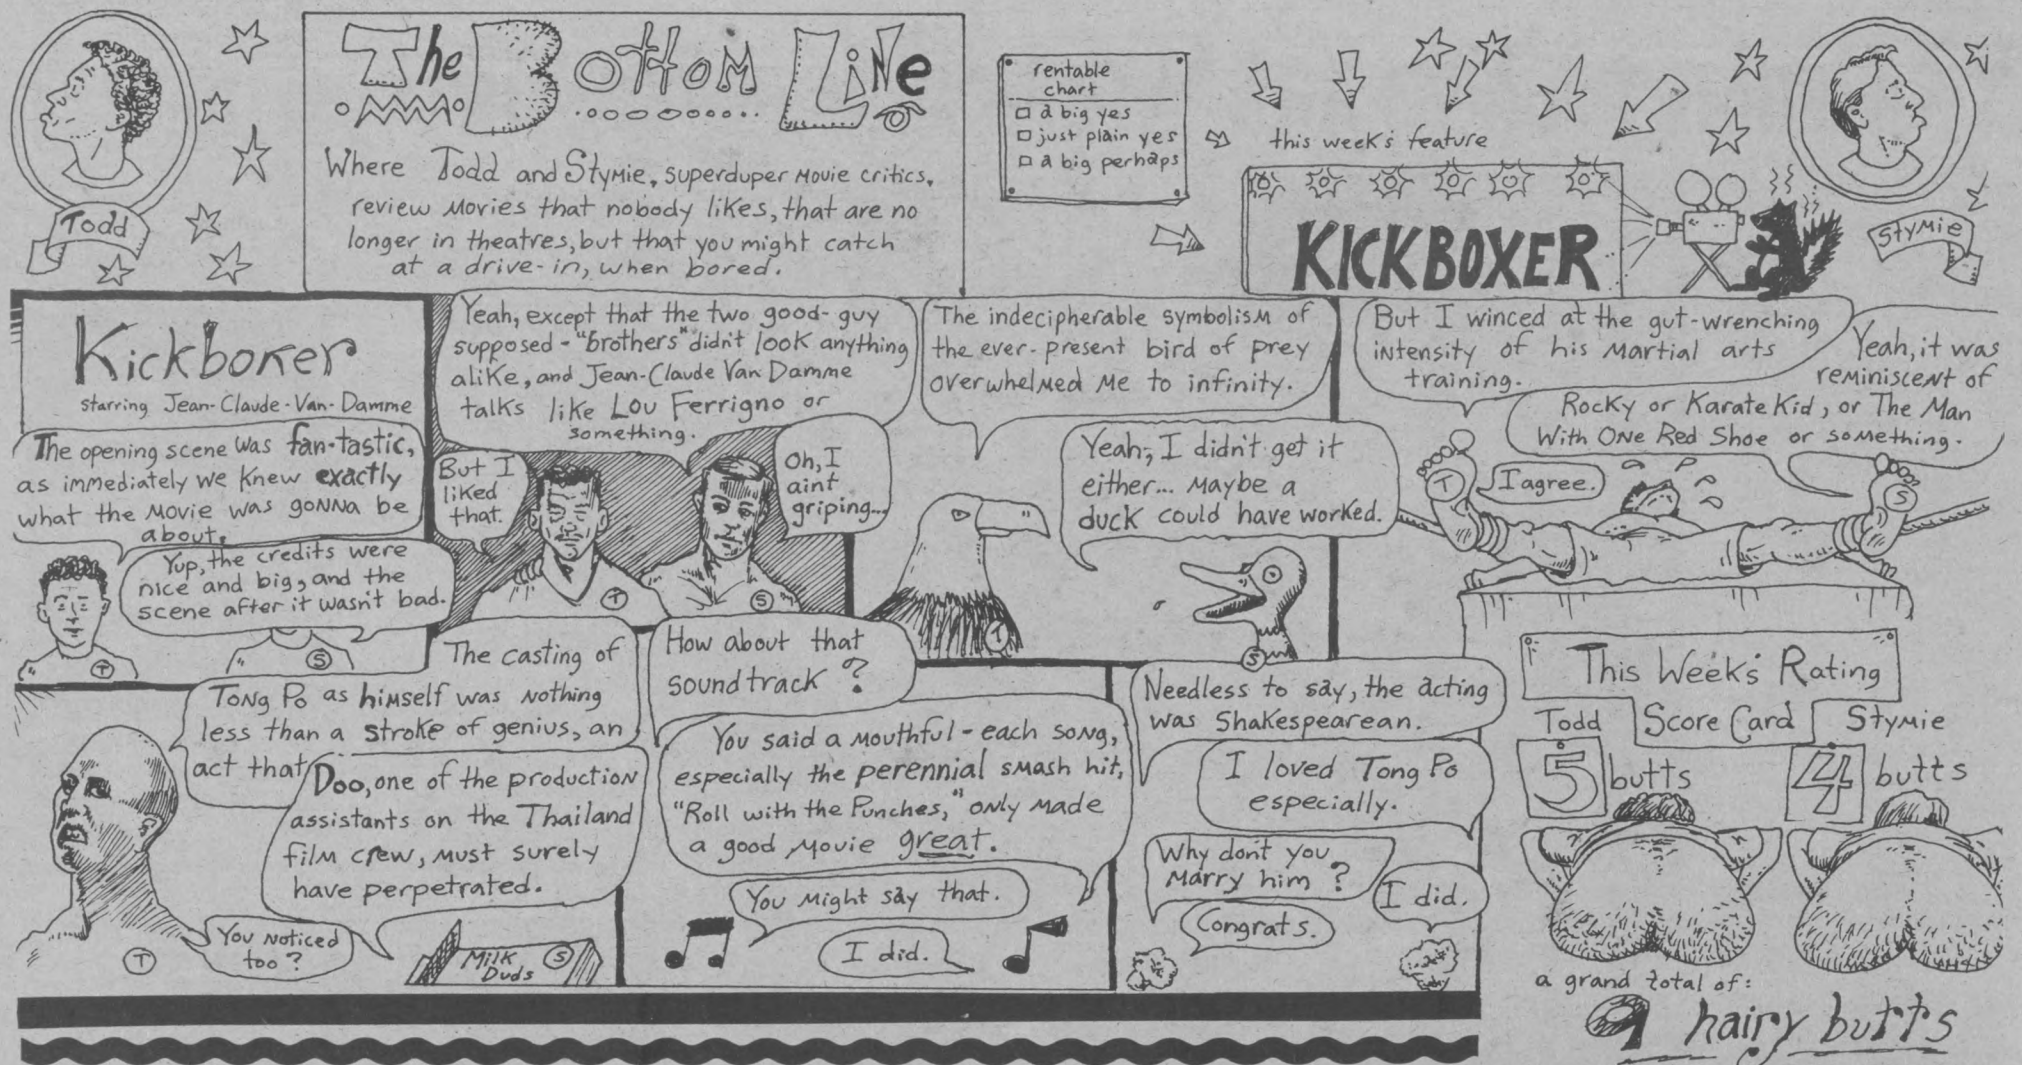 Todd
The Bottom Line
Where Todd and Stymie, superduper movie critics,
review movies that nobody likes, that are no
longer in theatres, but that you might catch
at a drive-in, when bored.
rentable
chart
a big yes
just plain yes
a big perhaps
this week's feature
KICKBOXER
Stymie
Kickboxer
starring Jean-Claude-Van-Damme
The opening scene was fan-tastic,
as immediately we knew exactly
what the movie was gonna be
about.
Yup, the credits were
nice and big, and the
scene after it wasn't bad.
T
S
Yeah, except that the two good-guy
supposed-"brothers" didn't look anything
alike, and Jean-Claude Van Damme
talks like Lou Ferrigno or
something.
But I
liked
that.
Oh, I
aint
griping...
T
S
The indecipherable symbolism of
the ever-present bird of prey
overwhelmed me to infinity.
Yeah, I didn't get it
either... maybe a
duck could have worked.
T
S
But I winced at the gut-wrenching
intensity of his martial arts
training.
Yeah, it was
reminiscent of
Rocky or Karate Kid, or The Man
With One Red Shoe or something.
I agree.
T
S
The casting of
Tong Po as himself was nothing
less than a stroke of genius, an
act that
Doo, one of the production
assistants on the Thailand
film crew, must surely
have perpetrated.
You noticed
too?
T
Milk
Duds
S
How about that
soundtrack?
You said a mouthful - each song,
especially the perennial smash hit,
"Roll with the Punches," only made
a good movie great.
You might say that.
I did.
Needless to say, the acting
was Shakespearean.
I loved Tong Po
especially.
Why don't you
marry him?
I did.
Congrats.
This Week's Rating
Score Card
Todd
5 butts
Stymie
4 butts
a grand total of:
9 hairy butts